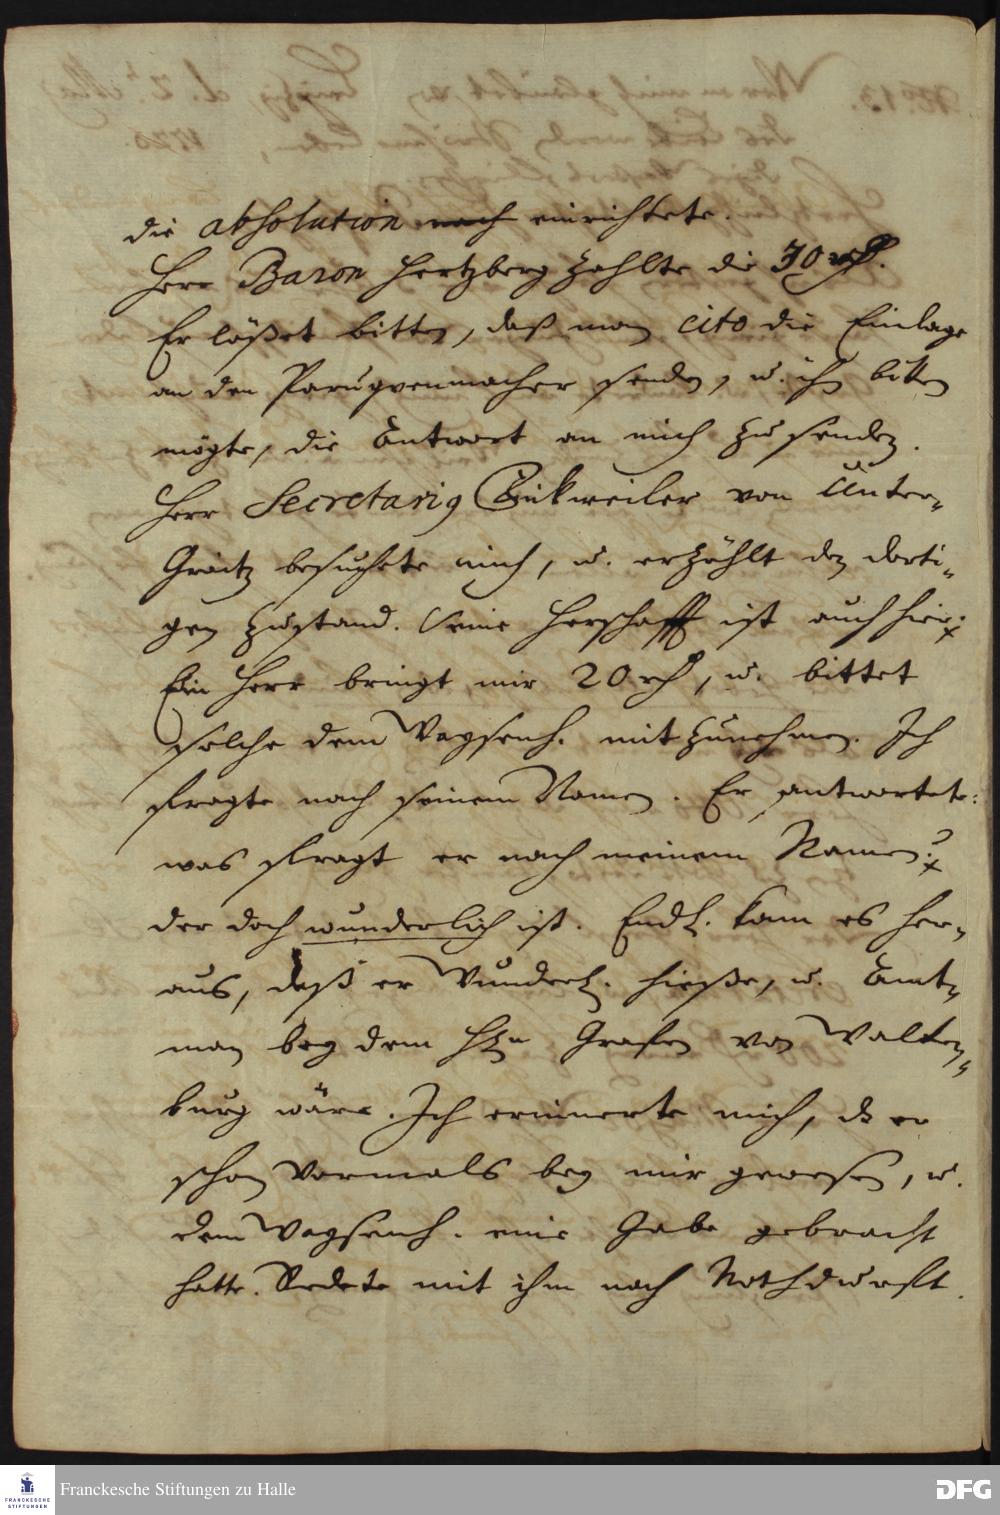 die absolution noch einrichtete.
Herr Baron Hertzberg zahlte die 30 rth.
Er läßet bitten, daß man cito die Einlage
an den Paruqvenmacher senden, u. ihn bitten
mögte, die Antwort an mich zu senden.
Herr Secretarius Binkweiler von Unter-
Graitz besuchte mich, u. erzählt den dorti-
gen Zustand. Seine Herschafft ist auch hier.
Ein Herr bringt mir 20 rth, u. bittet
solche dem Waysenh. mitzunehmen. Ich
fragte nach seinem Namen. Er antwortete:
was fragt er nach meinem Namen?
der doch wunderlich ist. Endl. kam es her-
aus, daß er Wunderl. hieße, u. Amt-
man bey dem Hrn Grafen von Walden-
burg wäre. Ich erinnerte mich, daß er
schon vormals bey mir gewesen, u.
dem Waysenh. eine Gabe gebracht
hatte. Redete mit ihm nach Nothdurfft.
Franckesche Stiftungen zu Halle
FRANCKESCHE
STIFTUNGEN
DFG